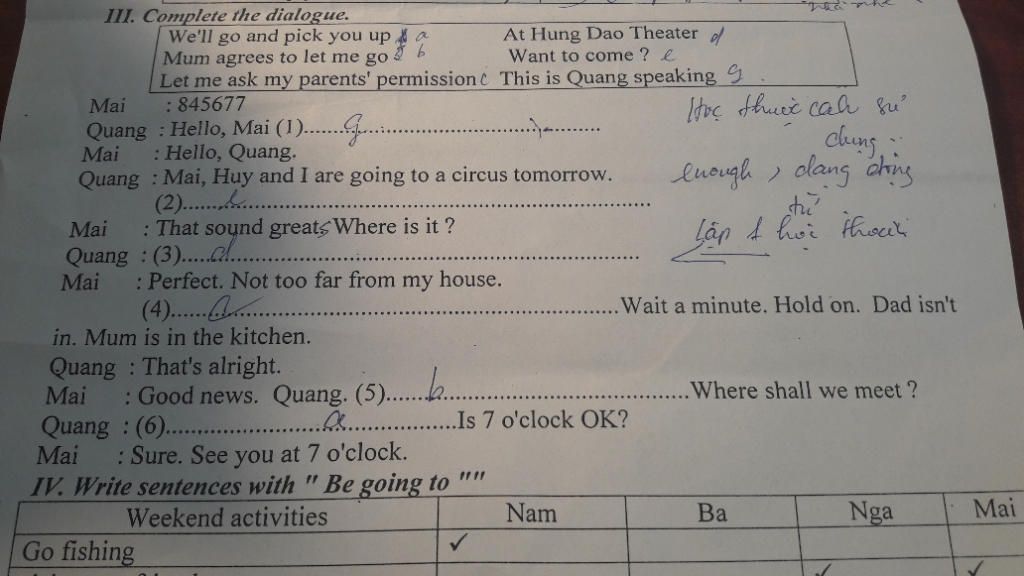 III. Complete the dialogue.
We'll go and pick you up a At Hung Dao Theater d
Mum agrees to let me go b Want to come ? e
Let me ask my parents' permission c This is Quang speaking g
Mai : 845677
Học thuộc cách sử
Quang : Hello, Mai (1)......g..................................
dụng
Mai : Hello, Quang.
enough , dạng động
Quang : Mai, Huy and I are going to a circus tomorrow.
từ
(2)......e............................................................
Mai : That sound greats Where is it ?
Lập 1 hội thoại
Quang : (3).....d...........................................................
Mai : Perfect. Not too far from my house.
(4)............................................................Wait a minute. Hold on. Dad isn't
in. Mum is in the kitchen.
Quang : That's alright.
Mai : Good news. Quang. (5)......b.....................................Where shall we meet ?
Quang : (6).......................a................Is 7 o'clock OK?
Mai : Sure. See you at 7 o'clock.
IV. Write sentences with " Be going to ""
Weekend activities Nam Ba Nga Mai
Go fishing ✓